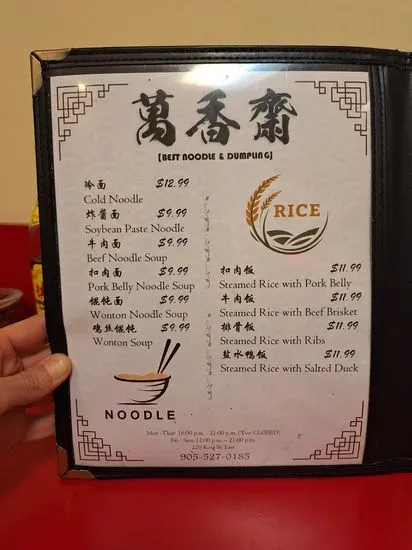 萬香齋
[BEST NOODLE & DUMPLING]
冷面 $12.99
Cold Noodle
炸酱面 $9.99
Soybean Paste Noodle
牛肉面 $9.99
Beef Noodle Soup
扣肉面 $9.99
Pork Belly Noodle Soup
馄饨面 $9.99
Wonton Noodle Soup
鸡丝馄饨 $9.99
Wonton Soup
NOODLE
RICE
扣肉饭 $11.99
Steamed Rice with Pork Belly
牛肉饭 $11.99
Steamed Rice with Beef Brisket
排骨饭 $11.99
Steamed Rice with Ribs
盐水鸭饭 $11.99
Steamed Rice with Salted Duck
Mon -Thur: 16:00 p.m. - 21:00 p.m. (Tue: CLOSED)
Fri - Sun: 12:00 p.m. – 21:00 p.m.
220 King St. East
905-527-0185